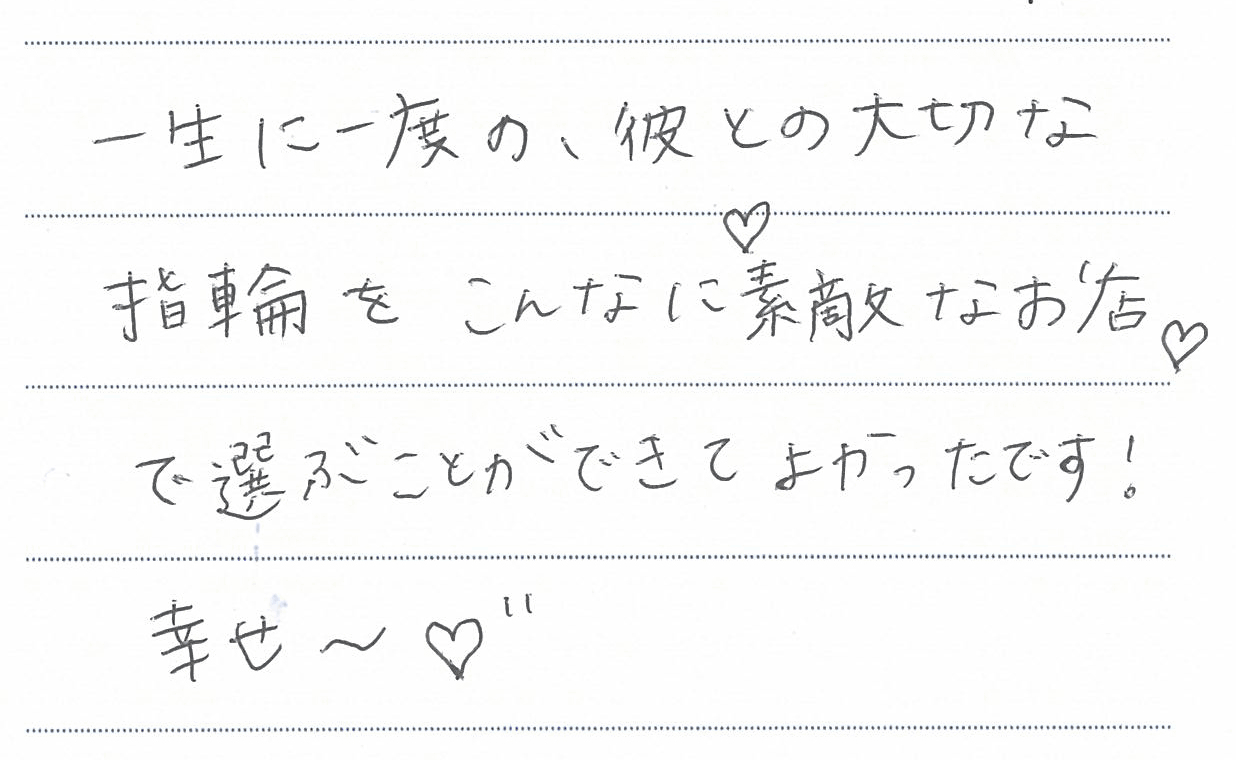 一生に一度の、彼との大切な
指輪を こんなに素敵なお店♡
で選ぶことができてよかったです!
幸せ〜♡"